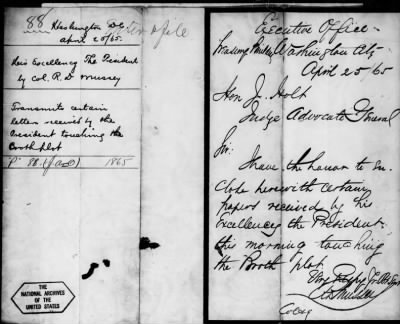 88 Washington D.C.
April 25/65.
file
His Excellency The President
by Col. R. D. Mussey
Transmits certain
letters received by the
President touching the
Booth plot
P. 88. (J.A.O) 1865
THE
NATIONAL ARCHIVES
OF THE
UNITED STATES
Executive Office
Washington City
April 25/65
Hon J. Holt
Judge Advocate General
Sir:
I have the honor to en-
close herewith certain
papers received by his
Excellency the President
this morning touching
the Booth plot.
Very
RDMussey
Col &c